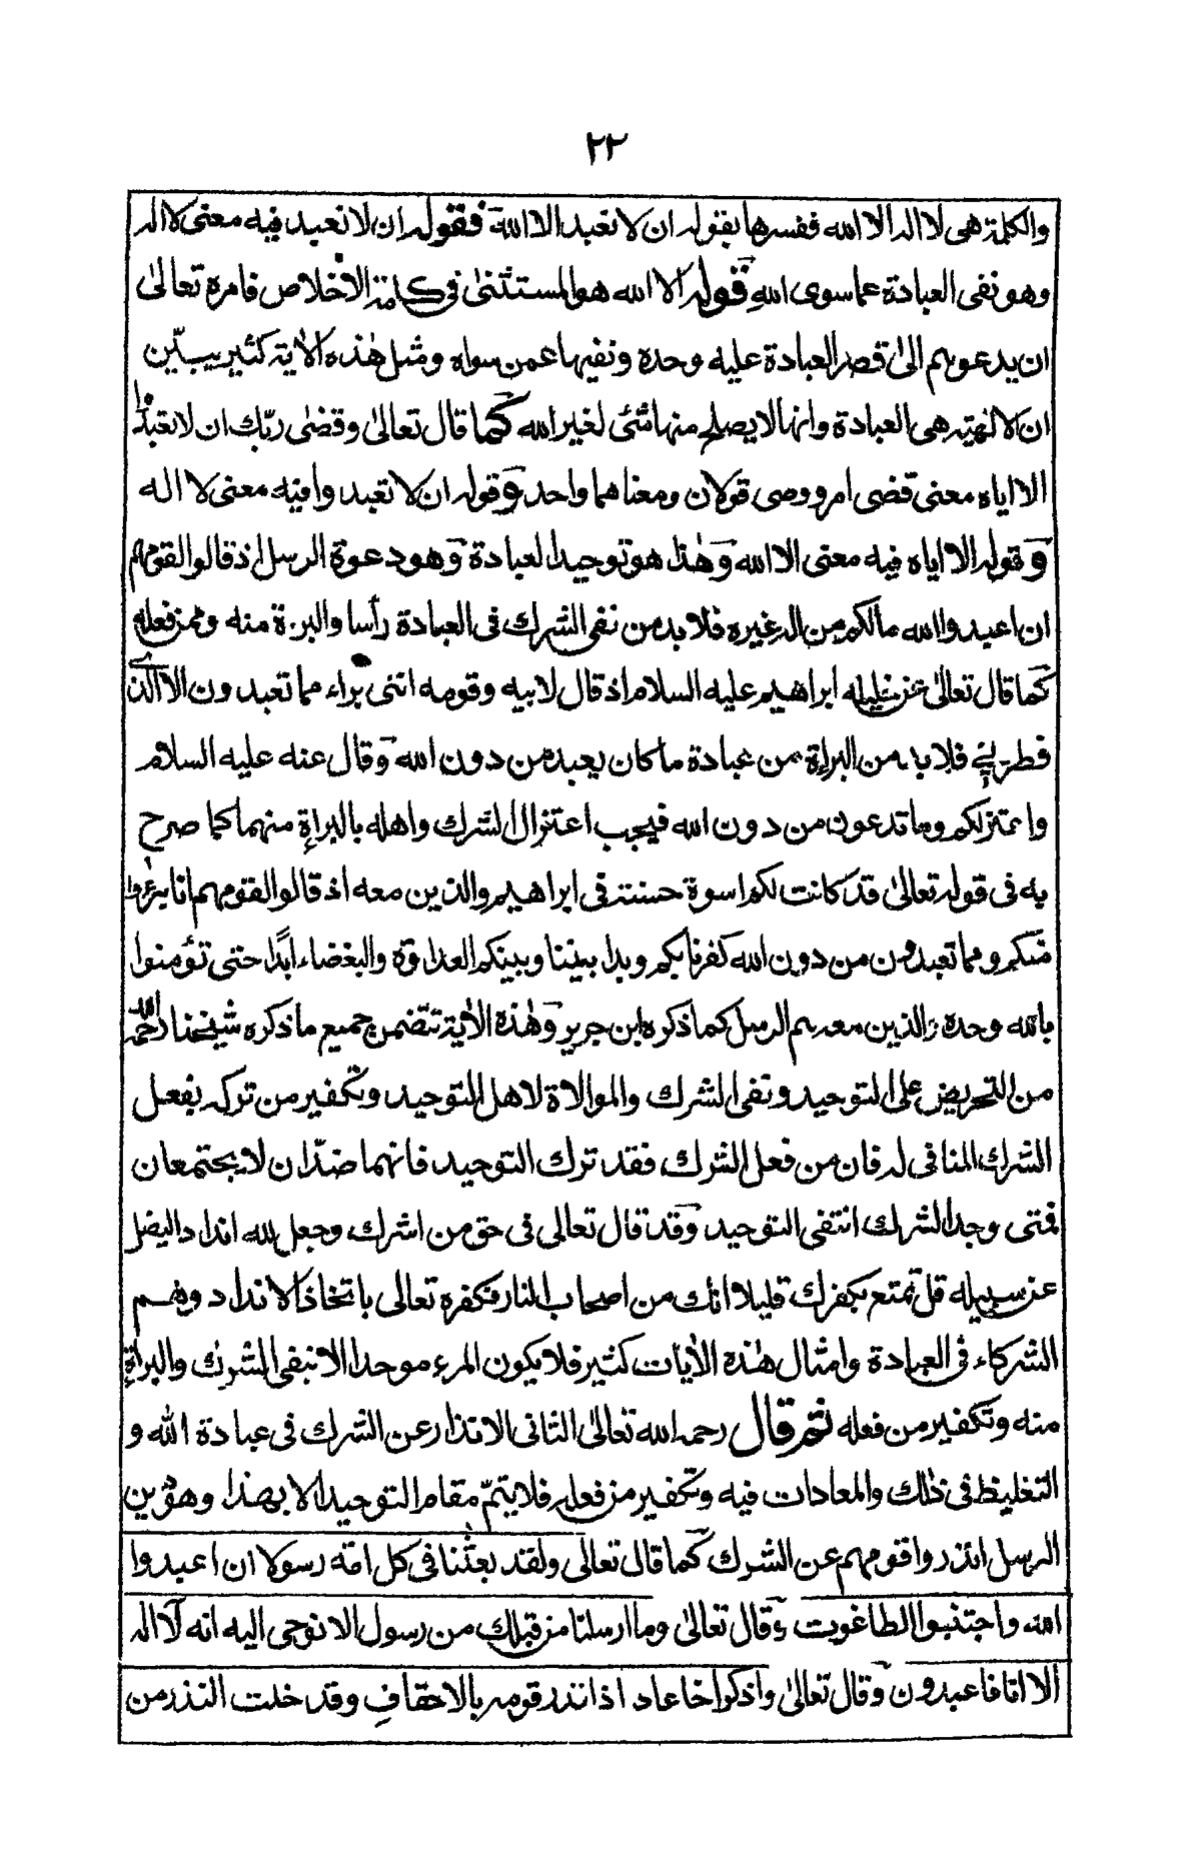 ٢٢
والكلمة هى لا اله الا الله ففسرها بقوله ان لا نعبد الا الله فقوله ان لا نعبد فيه معنى لا اله
وهو نفى العبادة عما سوى الله قوله الا الله هو المستثنىٰ فى كلمة الاخلاص فامره تعالىٰ
ان يدعوهم الىٰ قصر العبادة عليه وحده ونفيها عمن سواه ومثل هٰذه الاٰية كثير يبيّن
ان الالٰهية هى العبادة وانها لا يصلح منها شئى لغير الله كما قال تعالىٰ وقضىٰ ربّك ان لا تعبدوا
الا اياه معنى قضى امر ووصى قولان ومعناهما واحد وقوله ان لا تعبدوا فيه معنى لا اله
وقوله الا اياه فيه معنى الا الله وهٰذا هو توحيد العبادة وهو دعوة الرسل اذ قالوا لقومهم
ان اعبدوا الله مالكم من اله غيره فلا بد من نفى الشرك فى العبادة رأسا والبرءة منه وممن فعله
كما قال تعالىٰ عن خليله ابراهيم عليه السلام اذ قال لابيه وقومه اننى براء مما تعبدون الا الذى
فطرنى فلا بد من البراءة من عبادة ما كان يعبد من دون الله وقال عنه عليه السلام
واعتزلكم وما تدعون من دون الله فيجب اعتزال الشرك واهله بالبراءة منهما كما صرح
به فى قوله تعالىٰ قد كانت لكم اسوة حسنة فى ابراهيم والذين معه اذ قالوا لقومهم انا برءٰوا
منكم ومما تعبدون من دون الله كفرنا بكم وبدا بيننا وبينكم العداوة والبغضاء ابدًا حتى تؤمنوا
بالله وحده والذين معه هم الرسل كما ذكره ابن جرير وهٰذه الاٰية تتضمن جميع ما ذكره شيخنا رحمه الله
من التحريض على التوحيد ونفى الشرك والموالاة لاهل التوحيد وتكفير من تركه بفعل
الشرك المنافى له فان من فعل الشرك فقد ترك التوحيد فانهما ضدّان لا يجتمعان
فمتى وجد الشرك انتفى التوحيد وقد قال تعالى فى حق من اشرك وجعل لله اندادا ليضل
عن سبيله قل تمتع بكفرك قليلا انك من اصحاب النار فكفره تعالى باتخاذ الانداد وهم
الشركاء فى العبادة وامثال هٰذه الاٰيات كثير فلا يكون المرء موحدا الا بنفى الشرك والبراءة
منه وتكفير من فعله ثم قال رحمه الله تعالىٰ الثانى الانذار عن الشرك فى عبادة الله و
التغليظ فى ذٰلك والمعادات فيه وتكفير من فعله فلا يتمّ مقام التوحيد الا بهذا وهو دين
الرسل انذروا قومهم عن الشرك كما قال تعالى ولقد بعثنا فى كل امّة رسولا ان اعبدوا
الله واجتنبوا الطاغوت وقال تعالىٰ وما ارسلنا من قبلك من رسول الا نوحى اليه انه لا اله
الا انا فاعبدون وقال تعالىٰ واذكر اخا عاد اذ انذر قومه بالاحقافِ وقد خلت النذر من